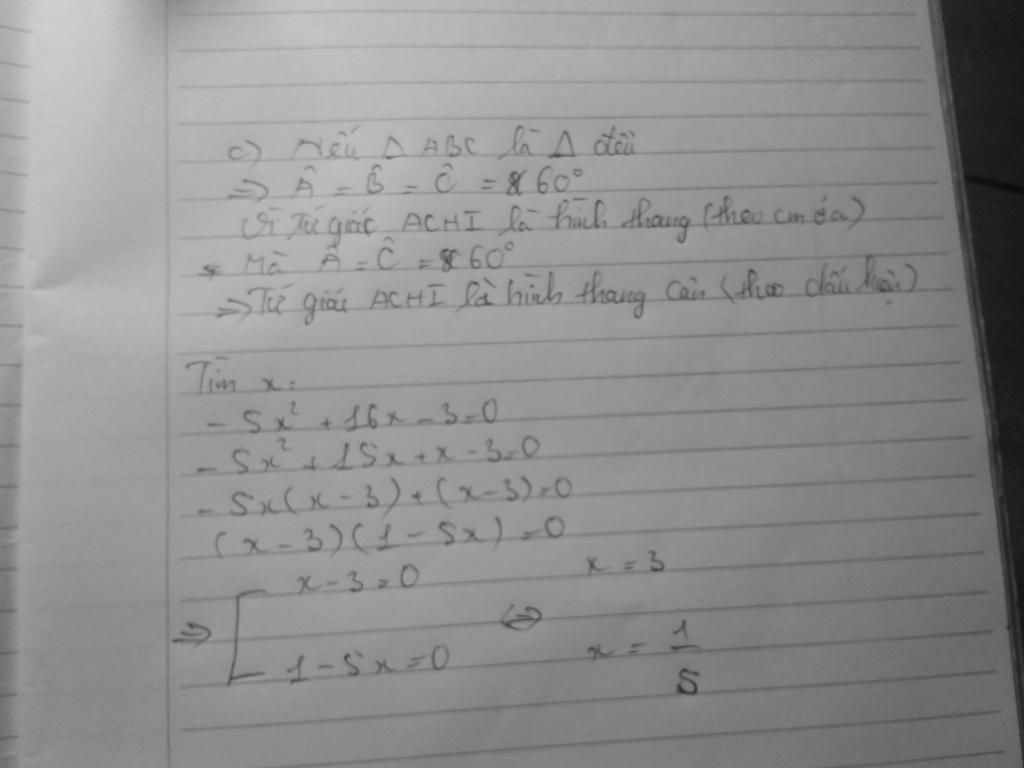 c) Nếu Δ ABC là Δ đều
=> Â = B̂ = Ĉ = 60°
Vì Tứ giác ACHI là hình thang (theo cm ở a)
* Mà Â = Ĉ = 60°
=> Tứ giác ACHI là hình thang cân (theo dấu hiệu)
Tìm x:
- 5x² + 16x - 3 = 0
- 5x² + 15x + x - 3 = 0
- 5x(x - 3) + (x - 3) = 0
(x - 3)(1 - 5x) = 0
=> [ x - 3 = 0 <=> x = 3
1 - 5x = 0 x = 1/5